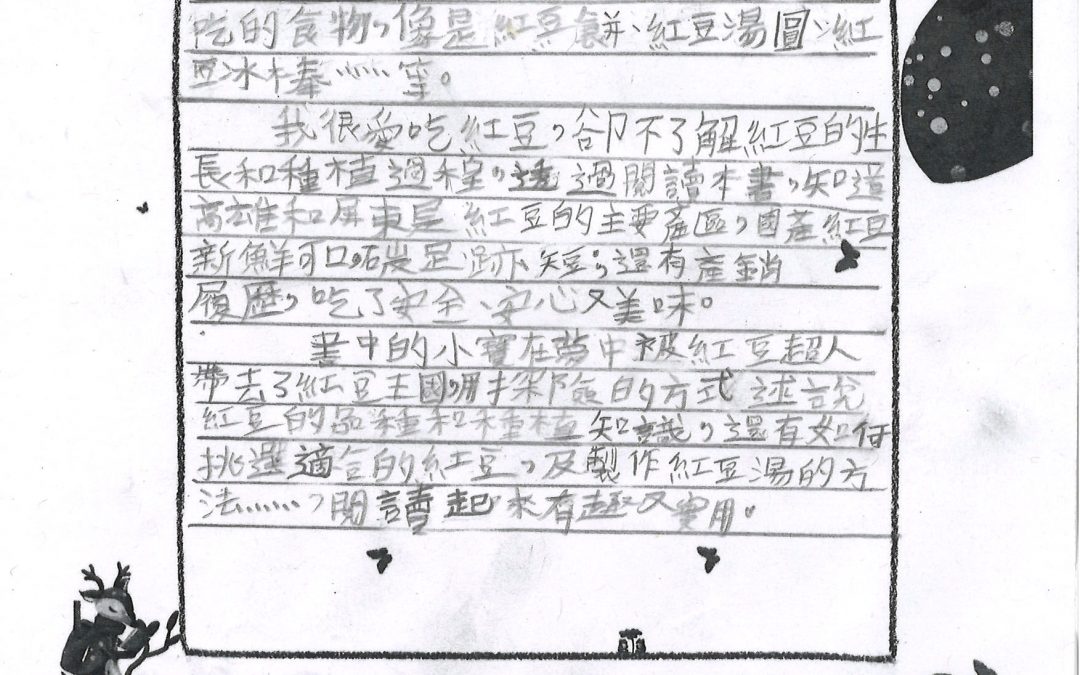 吃的食物，像是紅豆餅、紅豆湯圓、紅
豆冰棒……等。
我很愛吃紅豆，卻不了解紅豆的生
長和種植過程，透過閱讀本書，知道
高雄和屏東是紅豆的主要產區，國產紅豆
新鮮可口，碳足跡短，還有產銷
履歷，吃了安全、安心又美味。
書中的小寶在夢中被紅豆超人
帶去了紅豆王國，用探險的方式述說
紅豆的品種和種植知識，還有如何
挑選適合的紅豆，及製作紅豆湯的方
法……，閱讀起來有趣又實用。